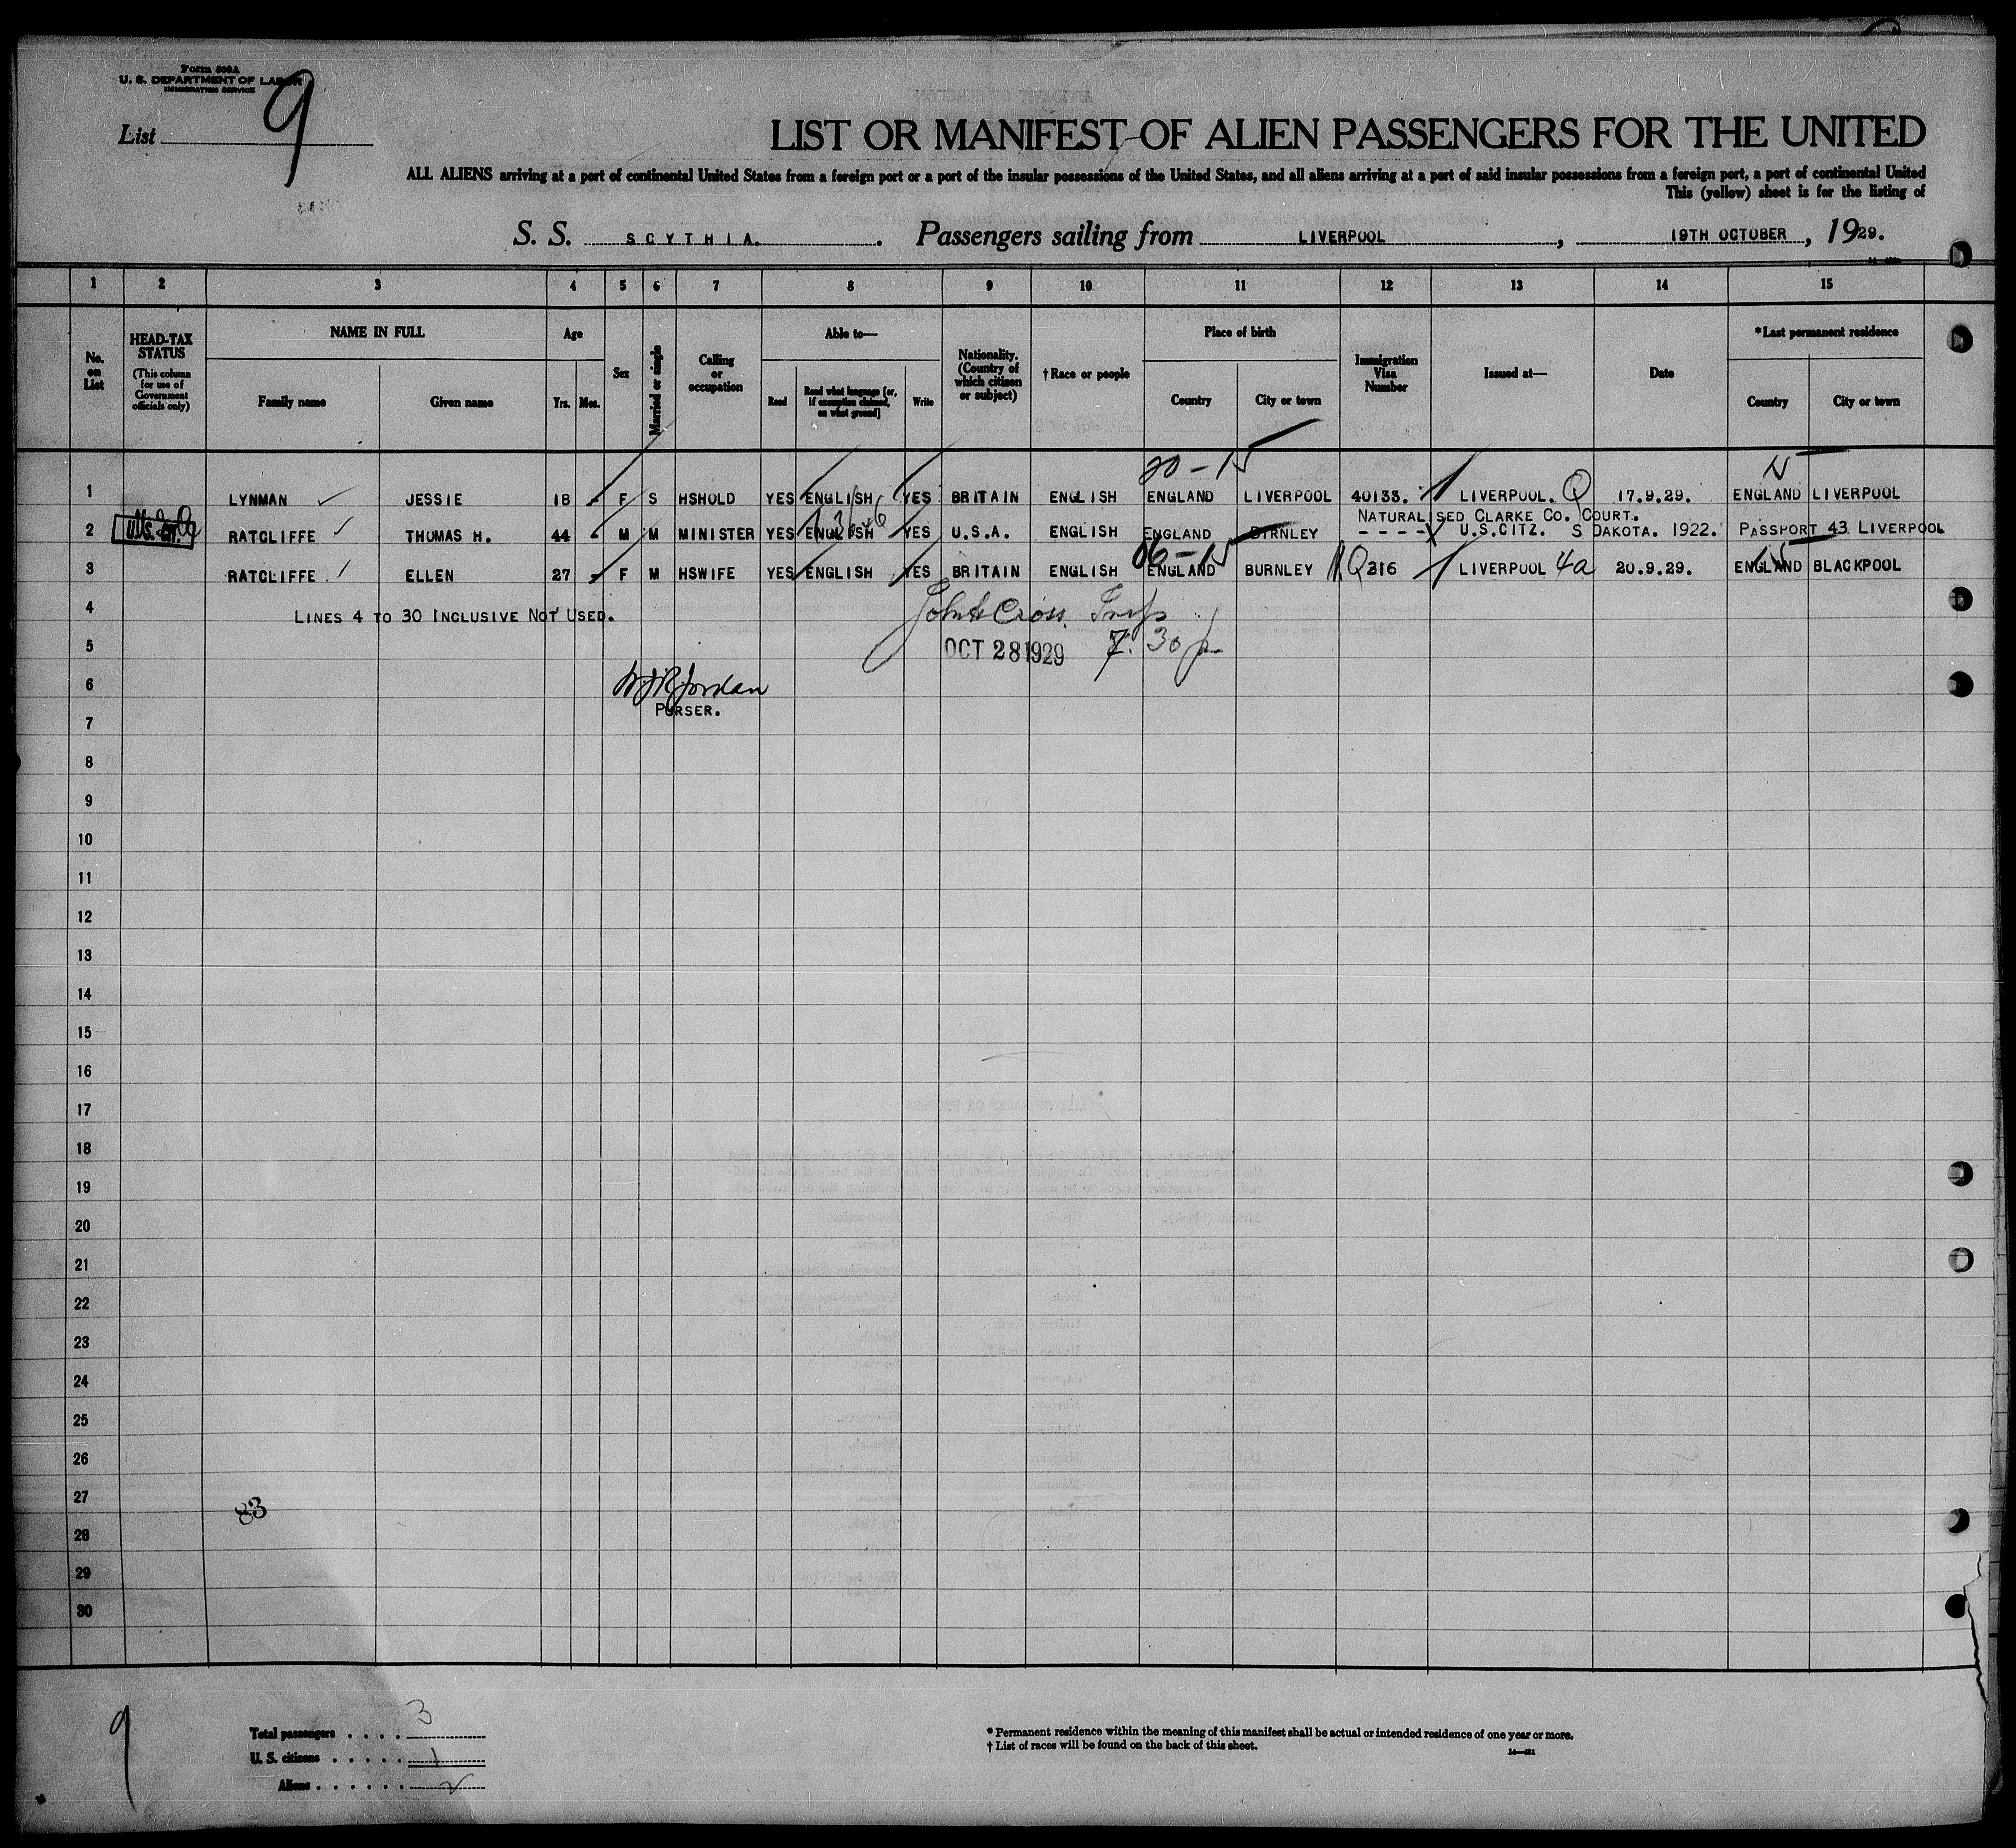 Form 500A
U. S. DEPARTMENT OF LABOR
IMMIGRATION SERVICE
List 9
LIST OR MANIFEST OF ALIEN PASSENGERS FOR THE UNITED
ALL ALIENS arriving at a port of continental United States from a foreign port or a port of the insular possessions of the United States, and all aliens arriving at a port of said insular possessions from a foreign port, a port of continental United
This (yellow) sheet is for the listing of
S. S. SCYTHIA. Passengers sailing from LIVERPOOL, 19TH OCTOBER, 1929.
1 2 3 4 5 6 7 8 9 10 11 12 13 14 15
No. on List
HEAD-TAX STATUS (This column for use of Government officials only)
NAME IN FULL
Family name Given name
Age
Yrs. Mos.
Sex
Married or single
Calling or occupation
Able to—
Read Read what language [or, if exemption claimed, on what ground] Write
Nationality. (Country of which citizen or subject)
† Race or people
Place of birth
Country City or town
Immigration Visa Number
Issued at—
Date
*Last permanent residence
Country City or town
20-15
1 LYNMAN JESSIE 18 F S HSHOLD YES ENGLISH YES BRITAIN ENGLISH ENGLAND LIVERPOOL 40133. LIVERPOOL. Q 17.9.29. ENGLAND LIVERPOOL
NATURALISED CLARKE CO. COURT.
2 RATCLIFFE THOMAS H. 44 M M MINISTER YES ENGLISH YES U.S.A. ENGLISH ENGLAND BIRNLEY - - - - U.S.CITZ. S DAKOTA. 1922. PASSPORT 43 LIVERPOOL
06-15
3 RATCLIFFE ELLEN 27 F M HSWIFE YES ENGLISH YES BRITAIN ENGLISH ENGLAND BURNLEY Q216 LIVERPOOL 4a 20.9.29. ENGLAND BLACKPOOL
4 LINES 4 TO 30 INCLUSIVE NOT USED. Cross
5 OCT 28 1929 7.30 p
6 Jordan
PURSER.
7
8
9
10
11
12
13
14
15
16
17
18
19
20
21
22
23
24
25
26
27
83
28
29
30
9
Total passengers . . . . 3
U. S. citizens . . . . . 1
Aliens . . . . . . 2
* Permanent residence within the meaning of this manifest shall be actual or intended residence of one year or more.
† List of races will be found on the back of this sheet.